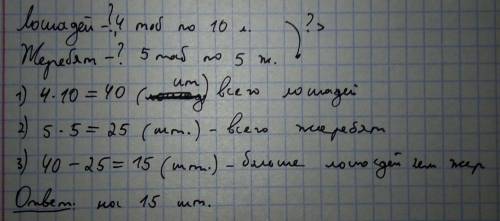 Лошадей - ? 4 таб по 10 л. ?>
Жеребят - ? 5 таб по 5 ж.
1) 4 · 10 = 40 (шт.) всего лошадей
2) 5 · 5 = 25 (шт.) - всего жеребят
3) 40 - 25 = 15 (шт.) - больше лошадей чем жер
Ответ: на 15 шт.